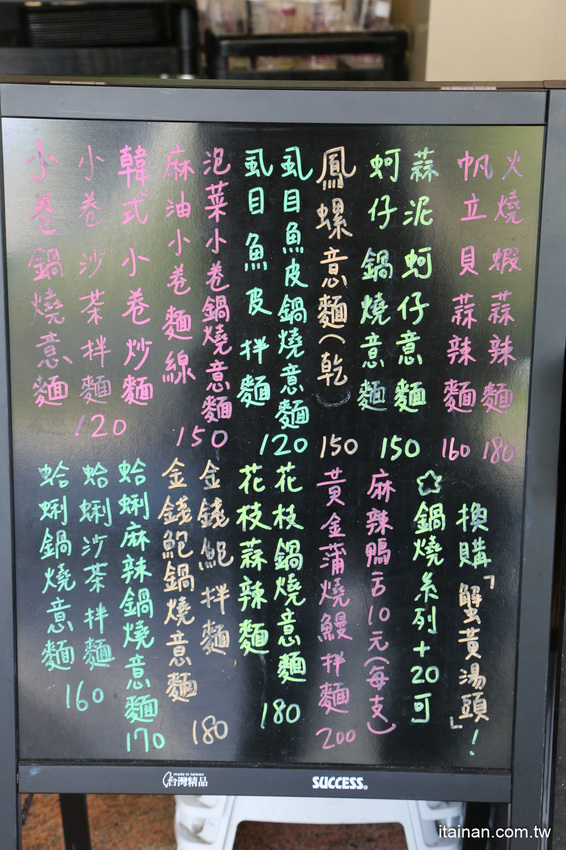 火燒蝦蒜辣麵 180
帆立貝蒜辣麵 160
蒜泥蚵仔意麵
蚵仔鍋燒意麵
150
鳳螺意麵(乾) 150
虱目魚皮鍋燒意麵
虱目魚皮拌麵
120
泡菜小卷鍋燒意麵
麻油小卷麵線
150
韓式小卷炒麵
小卷沙茶拌麵
小卷鍋燒意麵
120
換購「蟹黃湯頭」!
☆鍋燒系列+20可
麻辣鴨舌10元(每支)
黃金蒲燒鰻拌麵 200
花枝鍋燒意麵
花枝蒜辣麵
180
金錢鮑拌麵
金錢鮑鍋燒意麵
180
蛤蜊麻辣鍋燒意麵 170
蛤蜊沙茶拌麵
蛤蜊鍋燒意麵
160
made in taiwan
台灣精品
SUCCESS®
itainan.com.tw